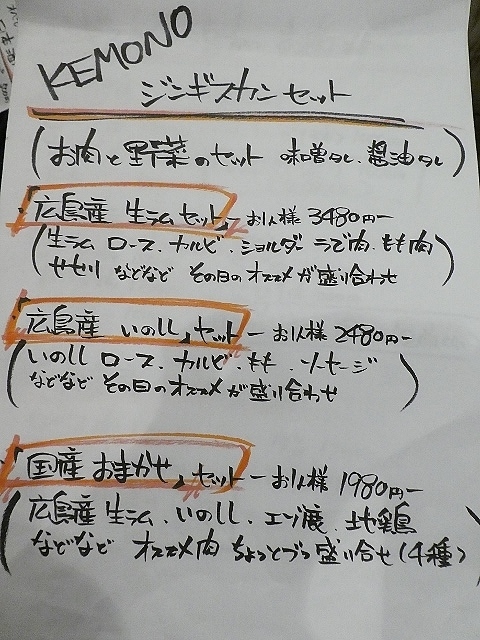 KEMONO
ジンギスカンセット
(お肉と野菜のセット 味噌タレ、醤油タレ)
「広島産 生ラムセット」ーお1人様 3480円ー
(生ラム ロース、カルビ、ショルダー、うで肉、もも肉
せせり などなど その日のオススメが盛り合わせ)
「広島産 いのしし」セット ーお1人様 2480円ー
(いのしし ロース、カルビ、もも、ソーセージ
などなど その日のオススメが盛り合わせ)
「国産 おまかせ」セット ーお1人様 1980円ー
(広島産 生ラム、いのしし、エゾ鹿、地鶏
などなど オススメ肉 ちょっとづつ盛り合せ(4種)